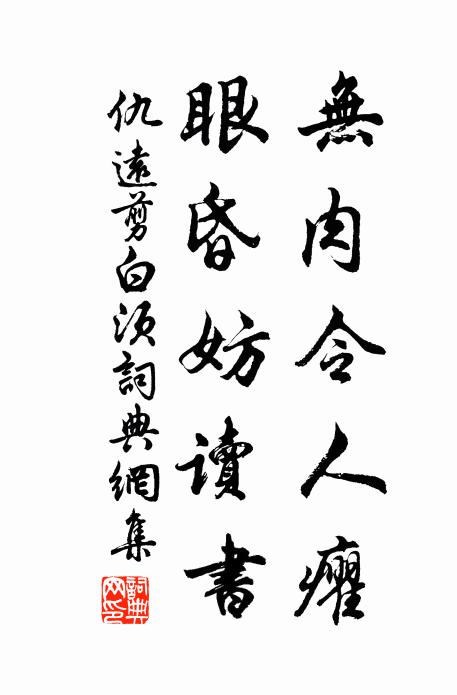 無肉令人癯
眼昏妨讀書
仇遠剪白須詞典網集
詞典網印